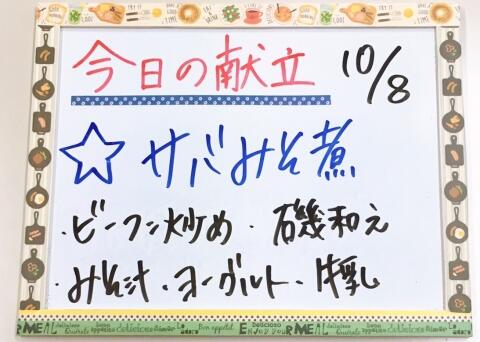 今日の献立 10/8
☆ サバみそ煮
・ビーフン炒め ・磯和え
・みそ汁 ・ヨーグルト ・牛乳